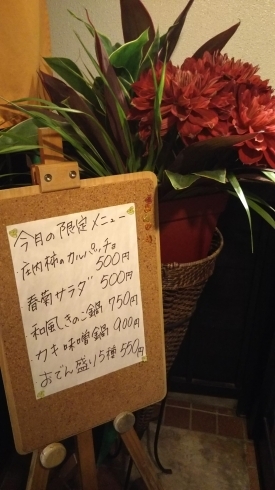 今月の限定メニュー
庄内柿のカルパッチョ
500円
春菊サラダ 500円
和風きのこ鍋 750円
カキ味噌鍋 900円
おでん盛り5種 550円